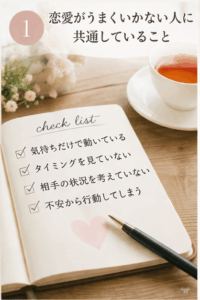 1
恋愛がうまくいかない人に
共通していること
check list
気持ちだけで動いている
タイミングを見ていない
相手の状況を考えていない
不安から行動してしまう